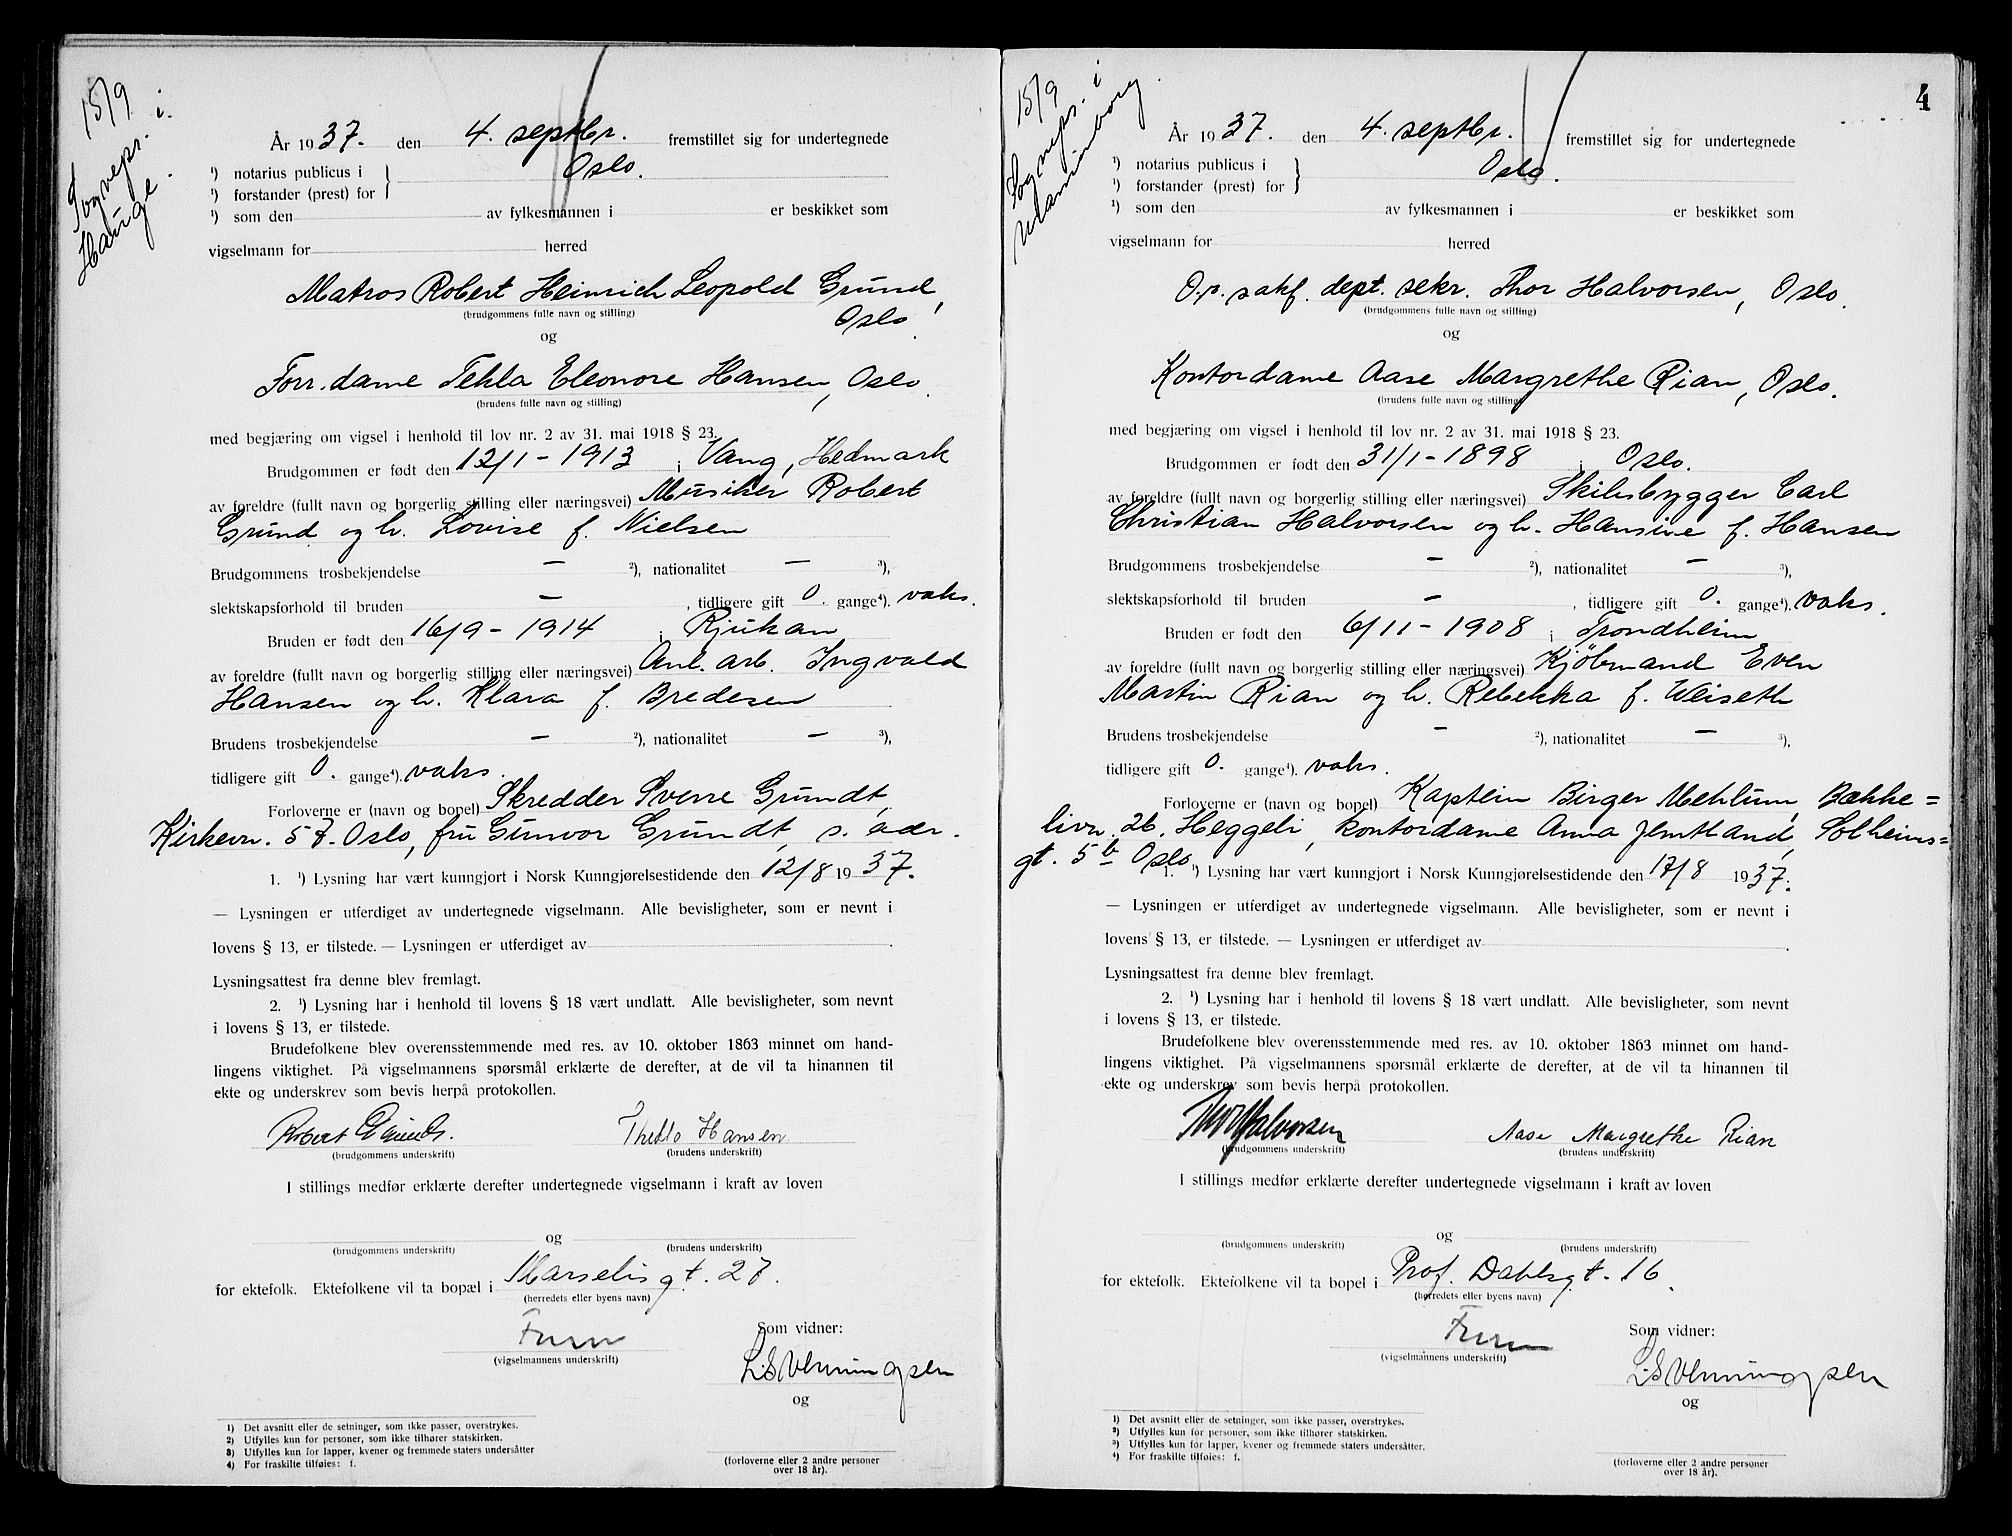 15/9
Sogneps. i
Hauge.
År 1937. den 4. septbr. fremstillet sig for undertegnede
¹) notarius publicus i } Oslo.
¹) forstander (prest) for
¹) som den av fylkesmannen i er beskikket som
vigselmann for herred
Matros Robert Heinrich Leopold Grund,
(brudgommens fulle navn og stilling)
Oslo.
og
Forr.dame Tekla Eleonore Hansen, Oslo.
(brudens fulle navn og stilling)
med begjæring om vigsel i henhold til lov nr. 2 av 31. mai 1918 § 23.
Brudgommen er født den 12/1 - 1913 i Vang, Hedmark
av foreldre (fullt navn og borgerlig stilling eller næringsvei) Musiker Robert
Grund og h. Lovise f. Nielsen
Brudgommens trosbekjendelse — ²), nationalitet — ³),
slektskapsforhold til bruden — , tidligere gift 0. gange⁴). vaks.
Bruden er født den 16/9 - 1914 i Rjukan
av foreldre (fullt navn og borgerlig stilling eller næringsvei) Anl. arb. Ingvald
Hansen og h. Klara f. Bredesen
Brudens trosbekjendelse — ²), nationalitet — ³),
tidligere gift 0. gange⁴). vaks.
Forloverne er (navn og bopel) Skredder Sverre Grundt,
Kirkevn. 57. Oslo, fru Gunvor Grundt, s. adr.
1. ¹) Lysning har vært kunngjort i Norsk Kunngjørelsestidende den 12/8 1937.
— Lysningen er utferdiget av undertegnede vigselmann. Alle bevisligheter, som er nevnt i
lovens § 13, er tilstede. — Lysningen er utferdiget av .
Lysningsattest fra denne blev fremlagt.
2. ¹) Lysning har i henhold til lovens § 18 vært undlatt. Alle bevisligheter, som nevnt
i lovens § 13, er tilstede.
Brudefolkene blev overensstemmende med res. av 10. oktober 1863 minnet om hand-
lingens viktighet. På vigselmannens spørsmål erklærte de derefter, at de vil ta hinannen til
ekte og underskrev som bevis herpå protokollen.
Robert Grundt. Thekla Hansen
(brudgommens underskrift) (brudens underskrift)
I stillings medfør erklærte derefter undertegnede vigselmann i kraft av loven
og
(brudgommens underskrift) (brudens underskrift)
for ektefolk. Ektefolkene vil ta bopæl i Marselisgt. 27.
(herredets eller byens navn)
Som vidner:
(vigselmannens underskrift)
og
1) Det avsnitt eller de setninger, som ikke passer, overstrykes.
2) Utfylles kun for personer, som ikke tilhører statskirken.
3) Utfylles kun for lapper, kvener og fremmede staters undersåtter
4) For fraskilte tilføies: f.
(forloverne eller 2 andre personer
over 18 år).
4
15/9
Sogneps. i
Uranienborg.
År 1937. den 4. septbr. fremstillet sig for undertegnede
¹) notarius publicus i } Oslo.
¹) forstander (prest) for
¹) som den av fylkesmannen i er beskikket som
vigselmann for herred
O.r.sakf. dept. sekr. Thor Halvorsen, Oslo.
(brudgommens fulle navn og stilling)
og
Kontordame Aase Margrethe Rian, Oslo.
(brudens fulle navn og stilling)
med begjæring om vigsel i henhold til lov nr. 2 av 31. mai 1918 § 23.
Brudgommen er født den 31/1 - 1898 i Oslo.
av foreldre (fullt navn og borgerlig stilling eller næringsvei) Skibsbygger Carl
Christian Halvorsen og h. Hansine f. Hansen
Brudgommens trosbekjendelse — ²), nationalitet — ³),
slektskapsforhold til bruden — , tidligere gift 0. gange⁴). vaks.
Bruden er født den 6/11 - 1908 i Trondheim
av foreldre (fullt navn og borgerlig stilling eller næringsvei) Kjöbmand Even
Martin Rian og h. Rebekka f. Weiseth
Brudens trosbekjendelse — ²), nationalitet — ³),
tidligere gift 0. gange⁴). vaks.
Forloverne er (navn og bopel) Kaptein Birger Mehlum, Bække=
livn. 26. Heggeli, kontordame Anna Jemtland, Solheims=
gt. 5b Oslo
1. ¹) Lysning har vært kunngjort i Norsk Kunngjørelsestidende den 17/8 1937.
— Lysningen er utferdiget av undertegnede vigselmann. Alle bevisligheter, som er nevnt i
lovens § 13, er tilstede. — Lysningen er utferdiget av .
Lysningsattest fra denne blev fremlagt.
2. ¹) Lysning har i henhold til lovens § 18 vært undlatt. Alle bevisligheter, som nevnt
i lovens § 13, er tilstede.
Brudefolkene blev overensstemmende med res. av 10. oktober 1863 minnet om hand-
lingens viktighet. På vigselmannens spørsmål erklærte de derefter, at de vil ta hinannen til
ekte og underskrev som bevis herpå protokollen.
Thor Halvorsen Aase Margrethe Rian
(brudgommens underskrift) (brudens underskrift)
I stillings medfør erklærte derefter undertegnede vigselmann i kraft av loven
og
(brudgommens underskrift) (brudens underskrift)
for ektefolk. Ektefolkene vil ta bopel i Prof. Dahlsgt. 16.
(herredets eller byens navn)
Som vidner:
(vigselmannens underskrift)
og
¹) Det avsnitt eller de setninger, som ikke passer, overstrykes.
²) Utfylles kun for personer, som ikke tilhører statskirken.
³) Utfylles kun for lapper, kvener og fremmede staters undersåtter.
⁴) For fraskilte tilføies: f.
(forloverne eller 2 andre personer
over 18 år).